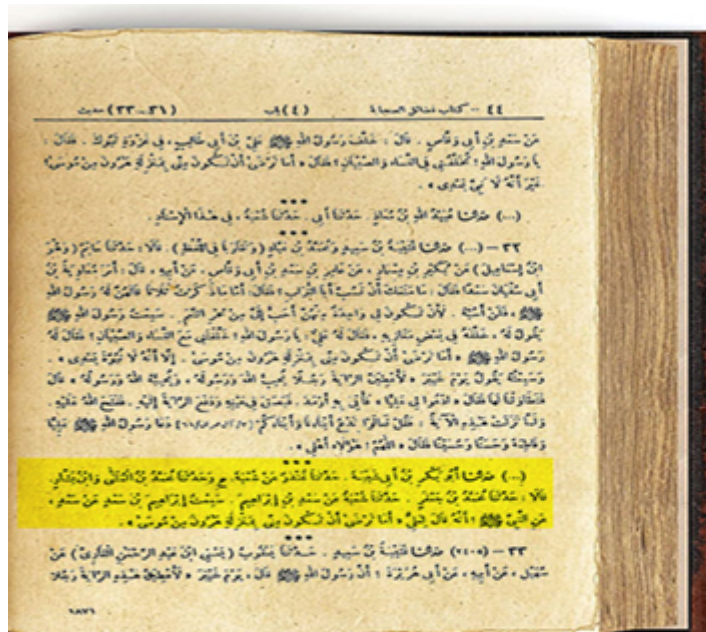 ٤٤ – كتاب فضائل الصحابة (٤) باب (٣١–٣٣) حديث
عَنْ سَعْدِ بْنِ أَبِي وَقَّاصٍ . قَالَ : خَلَّفَ رَسُولُ اللهِ ﷺ عَلِيَّ بْنَ أَبِي طَالِبٍ ، فِي غَزْوَةِ تَبُوكَ . فَقَالَ :
يَا رَسُولَ اللهِ ! تُخَلِّفُنِي فِي النِّسَاءِ وَالصِّبْيَانِ ؟ فَقَالَ « أَمَا تَرْضَىٰ أَنْ تَكُونَ مِنِّي بِمَنْزِلَةِ هَرُونَ مِنْ مُوسَىٰ ؟
غَيْرَ أَنَّهُ لَا نَبِيَّ بَعْدِي » .
(...) حدثنا عُبَيْدُ اللهِ بْنُ مُعَاذٍ . حَدَّثَنَا أَبِي . حَدَّثَنَا شُعْبَةُ ، فِي هَٰذَا الْإِسْنَادِ .
٣٢ – (...) حدثنا قُتَيْبَةُ بْنُ سَعِيدٍ وَمُحَمَّدُ بْنُ عَبَّادٍ ( وَتَقَارَبَا فِي اللَّفْظِ ) . قَالَا : حَدَّثَنَا حَاتِمٌ ( وَهُوَ
ابْنُ إِسْمَاعِيلَ ) عَنْ بُكَيْرِ بْنِ مِسْمَارٍ ، عَنْ عَامِرِ بْنِ سَعْدِ بْنِ أَبِي وَقَّاصٍ ، عَنْ أَبِيهِ ، قَالَ : أَمَرَ مُعَاوِيَةُ بْنُ
أَبِي سُفْيَانَ سَعْدًا فَقَالَ : مَا مَنَعَكَ أَنْ تَسُبَّ أَبَا التُّرَابِ ؟ فَقَالَ : أَمَّا مَا ذَكَرْتُ ثَلَاثًا قَالَهُنَّ لَهُ رَسُولُ اللهِ
ﷺ ، فَلَنْ أَسُبَّهُ . لَأَنْ تَكُونَ لِي وَاحِدَةٌ مِنْهُنَّ أَحَبُّ إِلَيَّ مِنْ حُمْرِ النَّعَمِ . سَمِعْتُ رَسُولَ اللهِ ﷺ
يَقُولُ لَهُ ، خَلَّفَهُ فِي بَعْضِ مَغَازِيهِ ، فَقَالَ لَهُ عَلِيٌّ : يَا رَسُولَ اللهِ ! خَلَّفْتَنِي مَعَ النِّسَاءِ وَالصِّبْيَانِ ؟ فَقَالَ لَهُ
رَسُولُ اللهِ ﷺ « أَمَا تَرْضَىٰ أَنْ تَكُونَ مِنِّي بِمَنْزِلَةِ هَرُونَ مِنْ مُوسَىٰ . إِلَّا أَنَّهُ لَا نُبُوَّةَ بَعْدِي » .
وَسَمِعْتُهُ يَقُولُ يَوْمَ خَيْبَرَ « لَأُعْطِيَنَّ الرَّايَةَ رَجُلًا يُحِبُّ اللهَ وَرَسُولَهُ ، وَيُحِبُّهُ اللهُ وَرَسُولُهُ » قَالَ
فَتَطَاوَلْنَا لَهَا فَقَالَ « ادْعُوا لِي عَلِيًّا » فَأُتِيَ بِهِ أَرْمَدَ . فَبَصَقَ فِي عَيْنِهِ وَدَفَعَ الرَّايَةَ إِلَيْهِ . فَفَتَحَ اللهُ عَلَيْهِ .
وَلَمَّا نَزَلَتْ هَٰذِهِ الْآيَةُ : فَقُلْ تَعَالَوْا نَدْعُ أَبْنَاءَنَا وَأَبْنَاءَكُمْ دَعَا رَسُولُ اللهِ ﷺ عَلِيًّا
وَفَاطِمَةَ وَحَسَنًا وَحُسَيْنًا فَقَالَ « اللّٰهُمَّ ! هَٰؤُلَاءِ أَهْلِي » .
(...) حدثنا أَبُو بَكْرِ بْنُ أَبِي شَيْبَةَ . حَدَّثَنَا غُنْدَرٌ عَنْ شُعْبَةَ . ح وَحَدَّثَنَا مُحَمَّدُ بْنُ الْمُثَنَّىٰ وَابْنُ بَشَّارٍ .
قَالَا : حَدَّثَنَا مُحَمَّدُ بْنُ جَعْفَرٍ . حَدَّثَنَا شُعْبَةُ عَنْ سَعْدِ بْنِ إِبْرَاهِيمَ . سَمِعْتُ إِبْرَاهِيمَ بْنَ سَعْدٍ عَنْ سَعْدٍ ،
عَنِ النَّبِيِّ ﷺ ؛ أَنَّهُ قَالَ لِعَلِيٍّ « أَمَا تَرْضَىٰ أَنْ تَكُونَ مِنِّي بِمَنْزِلَةِ هَرُونَ مِنْ مُوسَىٰ » .
٣٣ – (٢٤٠٥) حدثنا قُتَيْبَةُ بْنُ سَعِيدٍ . حَدَّثَنَا يَعْقُوبُ ( يَعْنِي ابْنَ عَبْدِ الرَّحْمَٰنِ الْقَارِيَّ ) عَنْ
سُهَيْلٍ ، عَنْ أَبِيهِ ، عَنْ أَبِي هُرَيْرَةَ ؛ أَنَّ رَسُولَ اللهِ ﷺ قَالَ ، يَوْمَ خَيْبَرَ « لَأُعْطِيَنَّ هَٰذِهِ الرَّايَةَ رَجُلًا
١٨٧١